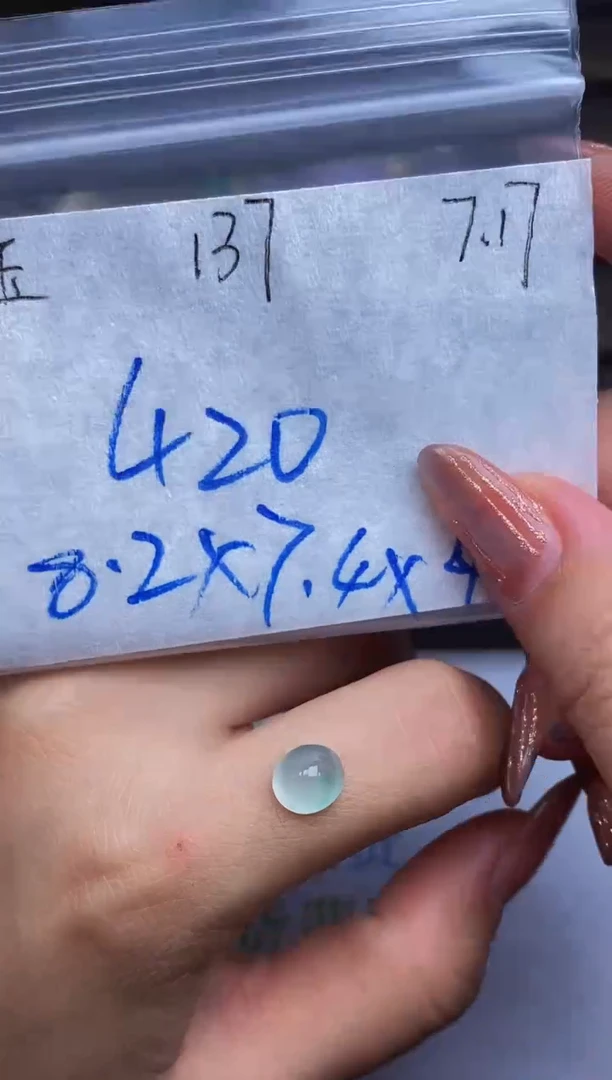 137 7.17
420
8.2×7.4×4